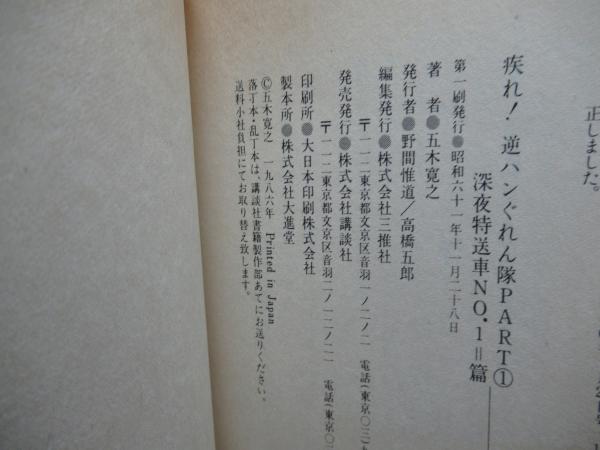 正しました。
疾れ！ 逆ハンぐれん隊PART①
深夜特送車NO.1=篇
第一刷発行●昭和六十一年十一月二十八日
著 者●五木寛之
発行者●野間惟道／高橋五郎
編集発行●株式会社三推社
〒一一二東京都文京区音羽一ノ二ノ二 電話(東京〇三)九
発売発行●株式会社講談社
〒一一二東京都文京区音羽二ノ一二ノ二一 電話(東京〇三
印刷所●大日本印刷株式会社
製本所●株式会社大進堂
©五木寛之 一九八六年 Printed in Japan
落丁本・乱丁本は、講談社書籍製作部あてにお送りください。
送料小社負担にてお取り替え致します。